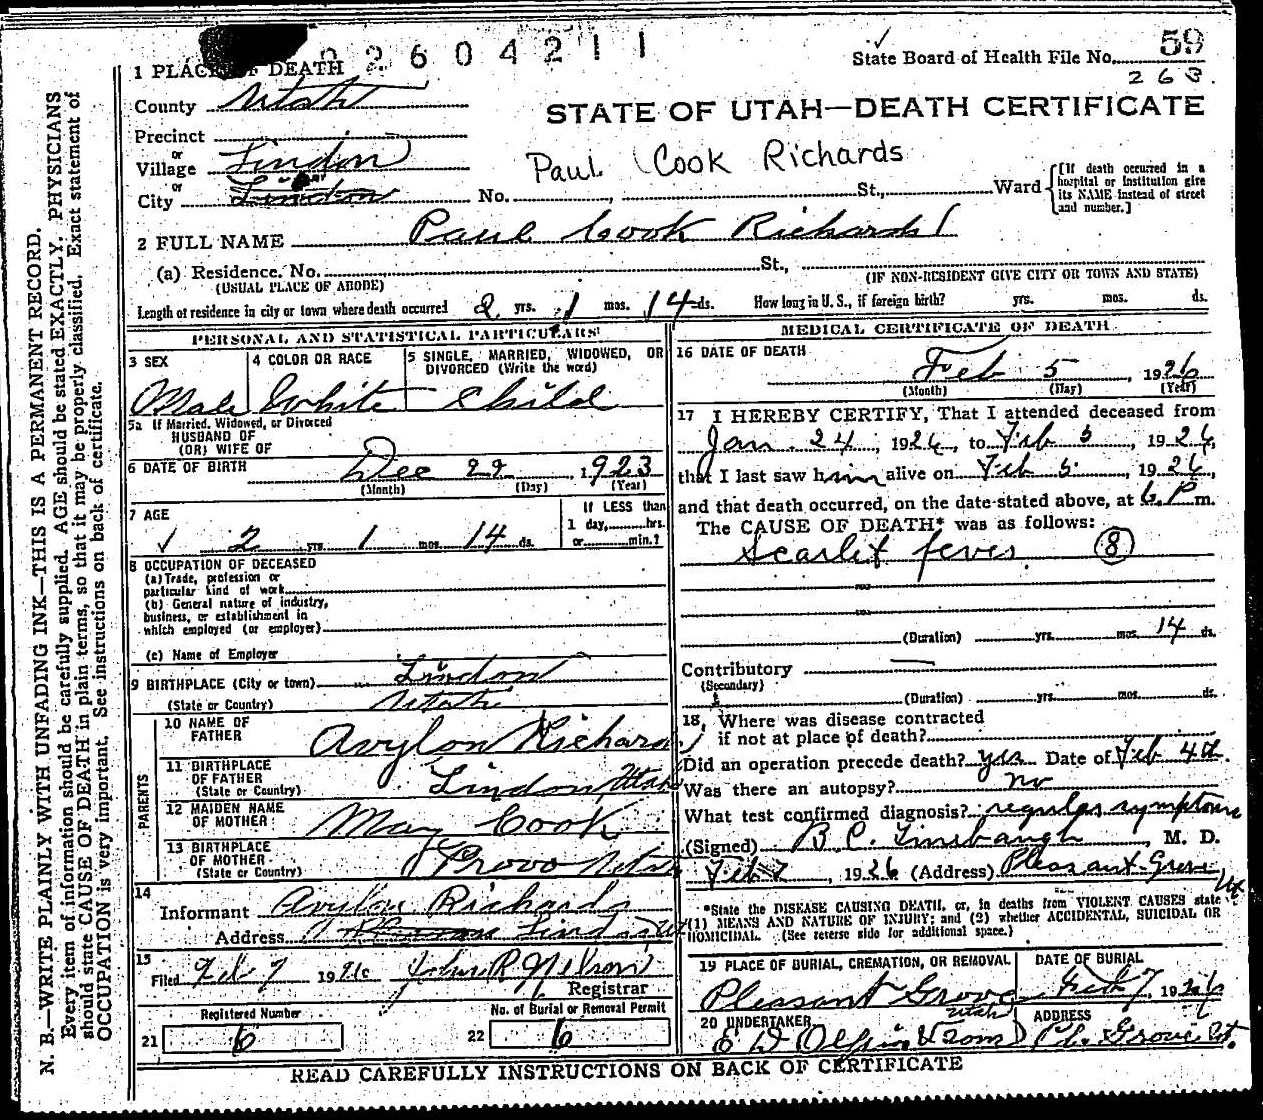 2604211
State Board of Health File No. 59
263.
1 PLACE OF DEATH
County Utah
STATE OF UTAH—DEATH CERTIFICATE
Precinct
or
Village Lindon
Paul Cook Richards
or
City Lindon No. St., Ward
[If death occurred in a hospital or institution give its NAME instead of street and number.]
2 FULL NAME Paul Cook Richards
(a) Residence. No. St.,
(USUAL PLACE OF ABODE) (IF NON-RESIDENT GIVE CITY OR TOWN AND STATE)
Length of residence in city or town where death occurred 2 yrs. 1 mos. 14 ds. How long in U. S., if foreign birth? yrs. mos. ds.
PERSONAL AND STATISTICAL PARTICULARS
3 SEX 4 COLOR OR RACE 5 SINGLE, MARRIED, WIDOWED, OR
DIVORCED (Write the word)
Male White Child
5a If Married, Widowed, or Divorced
HUSBAND OF
(OR) WIFE OF
6 DATE OF BIRTH Dec 22 1923
(Month) (Day) (Year)
7 AGE If LESS than
1 day, hrs.
2 yrs 1 mos 14 ds. or min.?
8 OCCUPATION OF DECEASED
(a) Trade, profession or
particular kind of work
(b) General nature of industry,
business, or establishment in
which employed (or employer)
(c) Name of Employer
9 BIRTHPLACE (City or town) Lindon
(State or Country) Utah
PARENTS
10 NAME OF
FATHER Avylon Richards
11 BIRTHPLACE
OF FATHER
(State or Country) Lindon Utah
12 MAIDEN NAME
OF MOTHER May Cook
13 BIRTHPLACE
OF MOTHER
(State or Country) Provo Utah
14
Informant Avylon Richards
Address Lindon Ut
15
Filed Feb 7 1926 John R Nelson
Registrar
Registered Number No. of Burial or Removal Permit
21 6 22 6
MEDICAL CERTIFICATE OF DEATH
16 DATE OF DEATH
Feb 5, 1926
(Month) (Day) (Year)
17 I HEREBY CERTIFY, That I attended deceased from
Jan. 24, 1926, to Feb 5, 1926,
that I last saw him alive on Feb 5, 1926,
and that death occurred, on the date stated above, at 6 P m.
The CAUSE OF DEATH* was as follows:
Scarlet fever 8
(Duration) yrs. mos. 14 ds.
Contributory
(Secondary)
(Duration) yrs. mos. ds.
18. Where was disease contracted
if not at place of death?
Did an operation precede death? yes Date of Feb 4th
Was there an autopsy? no
What test confirmed diagnosis? regular symptoms
(Signed) B. C. Linebaugh, M. D.
Feb 7, 1926 (Address) Pleasant Grove Ut
*State the DISEASE CAUSING DEATH, or, in deaths from VIOLENT CAUSES state
(1) MEANS AND NATURE OF INJURY; and (2) whether ACCIDENTAL, SUICIDAL OR
HOMICIDAL. (See reverse side for additional space.)
19 PLACE OF BURIAL, CREMATION, OR REMOVAL DATE OF BURIAL
Pleasant Grove Utah Feb 7, 1926
20 UNDERTAKER ADDRESS
E D Olpin & Sons Pl. Grove Ut.
READ CAREFULLY INSTRUCTIONS ON BACK OF CERTIFICATE
N. B.—WRITE PLAINLY WITH UNFADING INK—THIS IS A PERMANENT RECORD.
Every item of information should be carefully supplied. AGE should be stated EXACTLY. PHYSICIANS
should state CAUSE OF DEATH in plain terms, so that it may be properly classified. Exact statement of
OCCUPATION is very important. See instructions on back of certificate.